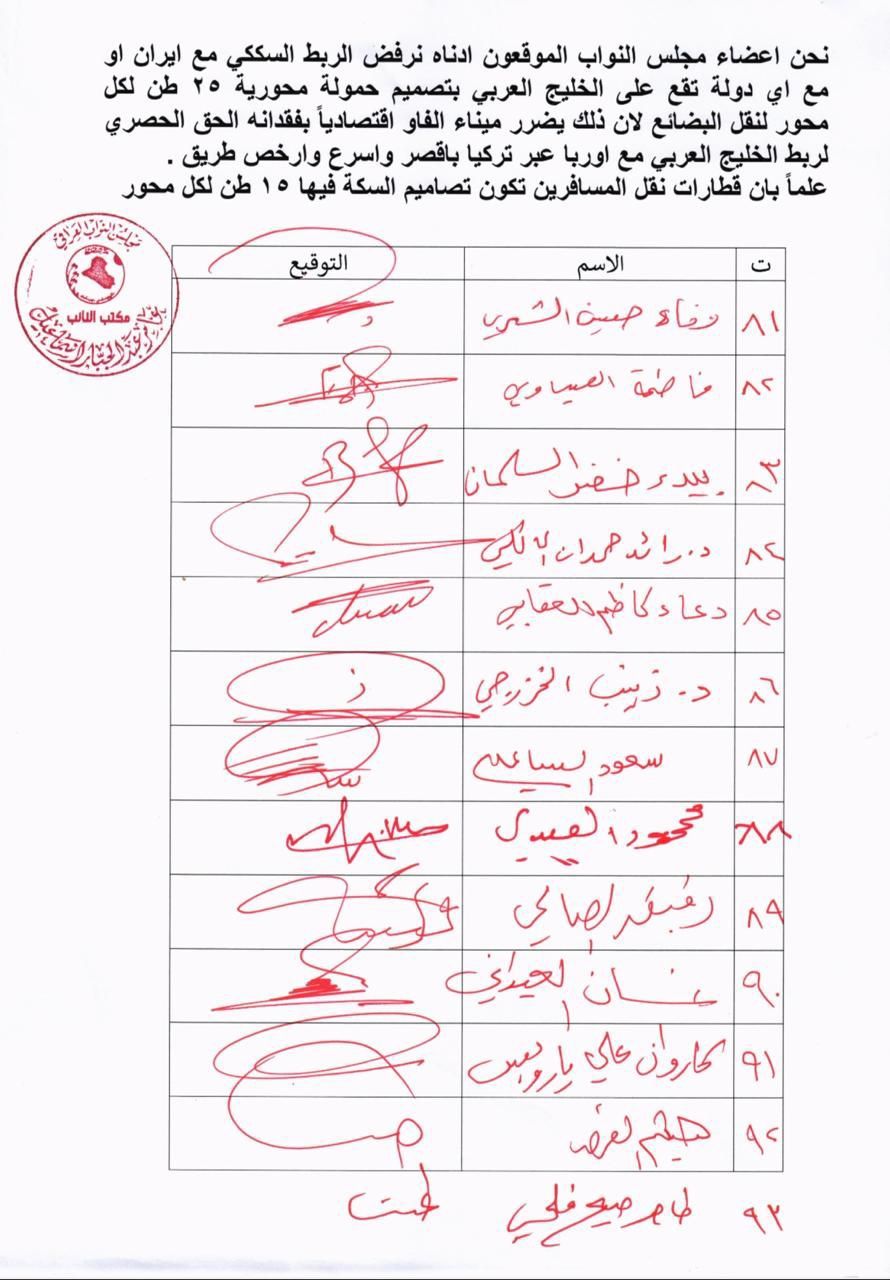 نحن اعضاء مجلس النواب الموقعون ادناه نرفض الربط السككي مع ايران او
مع اي دولة تقع على الخليج العربي بتصميم حمولة محورية ٢٥ طن لكل
محور لنقل البضائع لان ذلك يضرر ميناء الفاو اقتصادياً بفقدانه الحق الحصري
لربط الخليج العربي مع اوربا عبر تركيا باقصر واسرع وارخص طريق .
علماً بان قطارات نقل المسافرين تكون تصاميم السكة فيها ١٥ طن لكل محور
مجلس النواب العراقي
مكتب النائب
عامر عبد الجبار اسماعيل
ت الاسم التوقيع
٨١ وفاء حسين الشمري
٨٢ فاطمة العيساوي
٨٣ بيداء خضر السلمان
٨٤ د. رائد حمدان المالكي
٨٥ دعاء كاظم العقابي
٨٦ د. زينب الخزرجي ز
٨٧ سعود الساعدي
٨٨ محمود
٨٩ رفيق الصالحي
٩٠ غسان العيداني
٩١ كاروان علي يارويس
٩٢ هيثم
٩٣